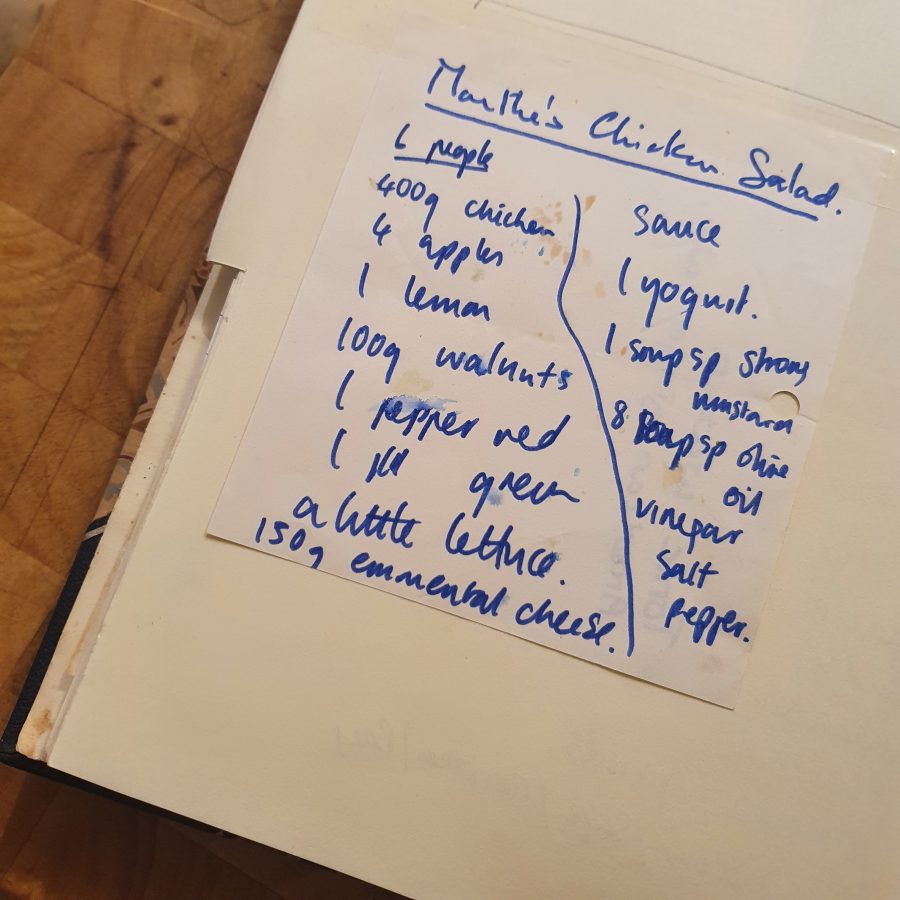 Marthe's Chicken Salad.
6 people
400g chicken
4 apples
1 lemon
100g walnuts
1 pepper red
1 green
a little lettuce.
150g emmental cheese.
sauce
1 yogurt.
1 soupsp strong
mustard
8 soupsp olive
oil
vinegar
salt
pepper.